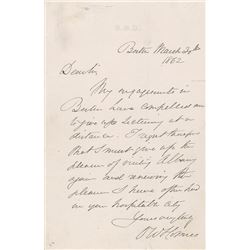 Boston March 29th
1862
Dear Sir
My engagements in
Boston have compelled me
to give up lecturing at a
distance. I regret therefore
that I must give up the
pleasure of visiting Albany
again and renewing the
pleasure I have often had
in your hospitable city
Yours very truly
O W Holmes